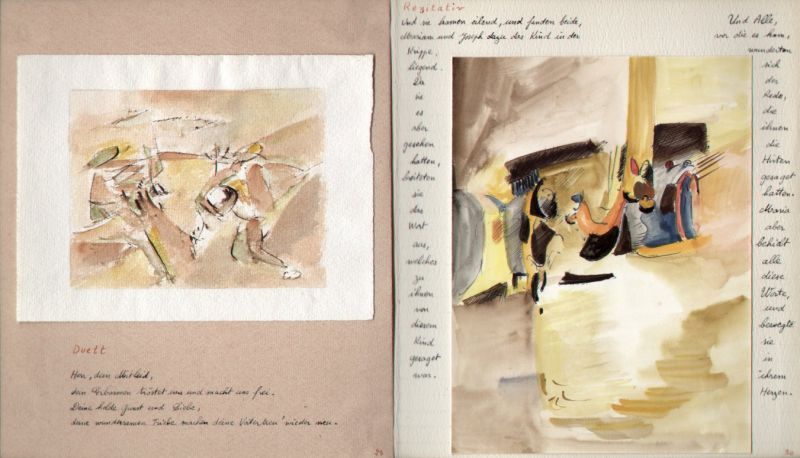 Duett
Herr, dein Mitleid,
dein Erbarmen tröstet uns und macht uns frei.
Deine holde Gunst und Liebe,
deine wundersamen Triebe machen deine Vatertreu' wieder neu.
29
Rezitativ
Und sie kamen eilend, und funden beide,
Mariam und Joseph dazu das Kind in der
Krippe,
liegend.
Da
sie
es
aber
gesehen
hatten,
breiteten
sie
das
Wort
aus,
welches
zu
ihnen
von
diesem
Kind
gesaget
war.
Und Alle,
vor die es kam,
wunderten
sich
der
Rede,
die
ihnen
die
Hirten
gesaget
hatten.
Maria
aber
behielt
alle
diese
Worte,
und
bewegte
sie
in
ihrem
Herzen.
30